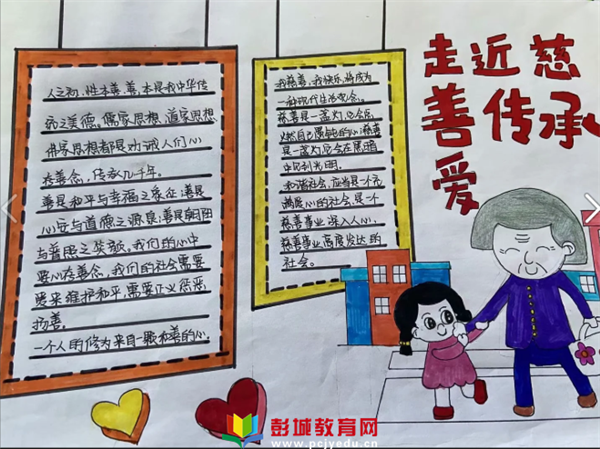 人之初，性本善，善，本是我中华传
统之美德，儒家思想，道家思想
佛家思想都是劝诫人们心
存善念，传承几千年。
善是和平与幸福之象征；善是
心安与道德之源泉；善是朝阳
与普照之
我们的心中
要心存善念，我们的社会需要
爱来维护和平，需要正义惩恶
扬善。
一个人的修为来自一颗和善的心。
我慈善，我快乐，将成为
一种现代生活观念。
慈善是一盏灯，它会点
燃自己
的心，慈善
是一盏灯，它会在黑暗
中见到光明。
和谐社会，应当是一个充
满爱心的社会，是一个
慈善事业深入人心，
慈善事业高度发达的
社会。
走近慈
善传承
爱
彭城教育网
www.pcjyedu.cn